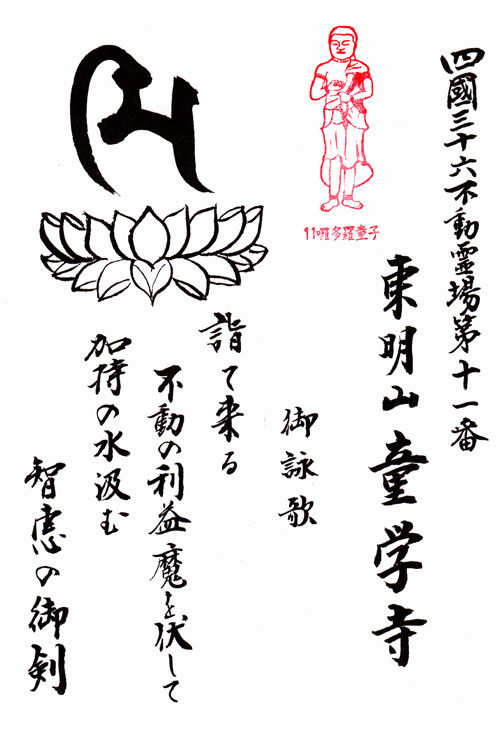 四國三十六不動霊場第十一番
東明山童学寺
11囉多羅童子
御詠歌
詣て来る
不動の利益魔を伏して
加持の水汲む
智恵の御剣